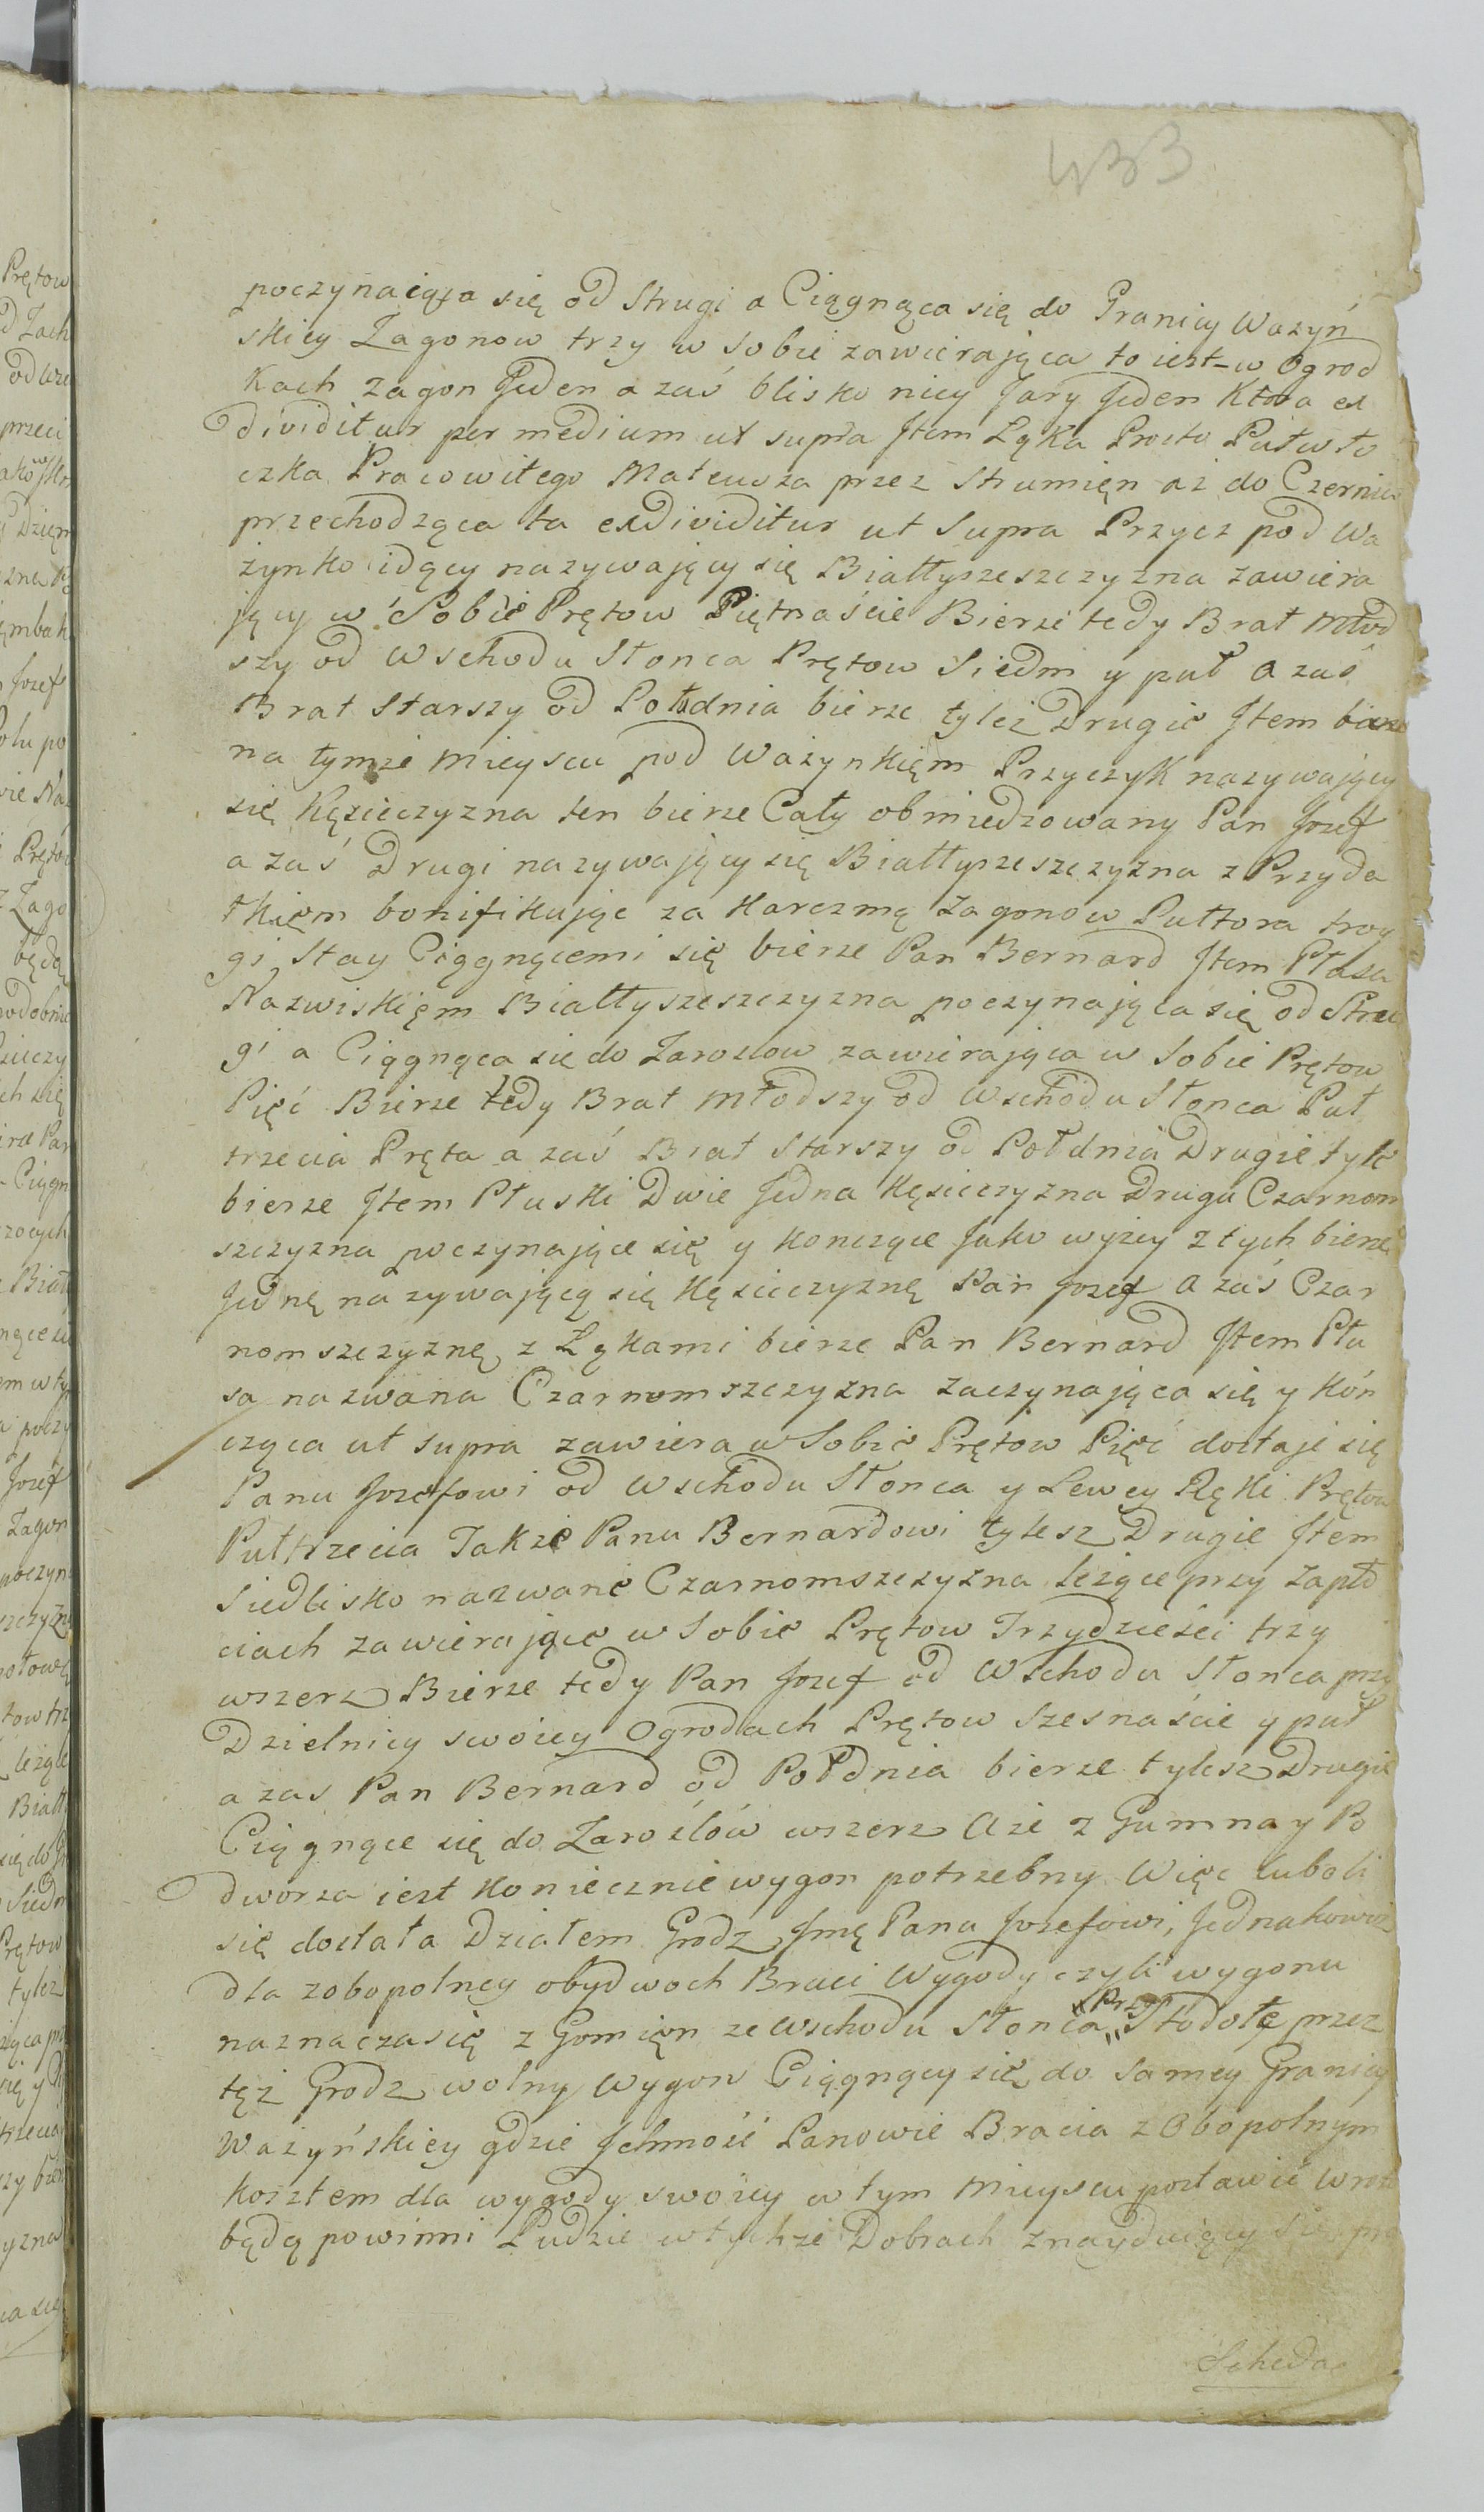 433
poczynaiąca się od Strugi a Ciągnąca się do Granicy Ważyń
skiey Zagonow trzy w Sobie zawierająca to iest w Ogrod
Kach Zagon Jeden a zaś blisko niey Jary Jeden Ktora ex
dividitur per medium ut supra Jtem Łąka Prosto Putwło
czka Pracowitego Mateusza przez Strumięn aż do Czernic
przechodząca ta exdividitur ut Supra Przycz pod Wa
żynko idący nazywający się Białłyszeszczyzna zawiera
jący w Sobie Prętow Piętnaście Bierze tedy Brat Młod
szy od Wschodu Słonca Prętow Siedm y puł a zaś
Brat Starszy od Połdnia bierze tyleż Drugie Jtem bierze
na tymże mieyscu pod Ważynkięm Przyczyk nazywający
się Kęsieczyzna ten bierze Cały obmiedzowany Pan Jozef
a zaś Drugi nazywający się Białłyszeszczyzna z Przyda
tkięm bonifikując za Karczmę Zagonow Pułtora troy
gi Stay Ciągnącemi się bierze Pan Bernard Jtem Płasa
Nazwiskięm Białłyszeszczyzna poczynająca się od Stru
gi a Ciągnąca się do Zaroslow zawierająca w Sobie Prętow
Pięć Bierze tedy Brat Młodszy od Wschodu Słonca Puł
trzecia Pręta a zaś Brat Starszy od Połdnia Drugie tyle
bierze Jtem Płuski Dwie Jedna Kęsieczyzna Druga Czarnom
szczyzna poczynające się y Konczące Jako wyżey z tych bierze
Jednę nazywającą się Kęsieczyznę Pan Jozef a zaś Czar
nomszczyznę z Łąkami bierze Pan Bernard Jtem Pła
sa nazwana Czarnomszczyzna zaczynająca się y Kón
cząca ut supra zawiera w Sobie Prętow Pięć dostaje się
Panu Jozefowi od Wschodu Słonca y Lewey Ręki Prętow
Pułtrzecia Takze Panu Bernardowi tylesz Drugie Jtem
Siedlisko nazwane Czarnomszczyzna leżące przy Zapło
ciach zawierające w Sobie Prętow Trzydzieści trzy
wszerz Bierze tedy Pan Jozef od Wschodu Słonca przy
Dzielnicy swoiey Ogrodach Prętow Szesnaście y puł
a zas Pan Bernard od Połdnia bierze tylesz Drugie
Ciągnące się do Zaroslów wszerz Aże z Gumna y Po
dworza iest Koniecznie wygon potrzebny Więc luboli
się dostała Działem Grodz Jmę Panu Jozefowi, Jednakowoż
dla zobopolney obydwoch Braci Wygody czyli wygonu
naznacza się z Gomięn ze Wschodu Słonca „Przy„ Stodołę przez
tęż Grodz wolny Wygon Ciągnący się do Samey Granicy
Ważyńskiey gdzie Jchmość Panowie Bracia zObopolnym
Kosztem dla wygody swoiey w tym Mieyscu postawić Wrota
będą powinni Ludzie w tychże Dobrach znayduiący się
Scheda